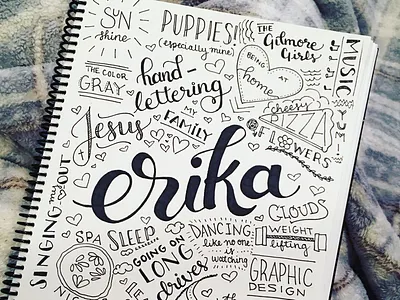 SUN
shine
PUPPIES!
(especially mine)
THE
Gilmore
Girls
MUSIC
THE COLOR
GRAY
hand-
lettering
BEING AT
home
cheesy
PIZZA
YUM
Jesus
MY
FAMILY
FLOWERS
erika
SINGING my
OUT
SPA
SLEEP
GOING ON
LONG
drives
DANCING
like no one
is watching
CLOUDS
WEIGHT
lifting
GRAPHIC
DESIGN